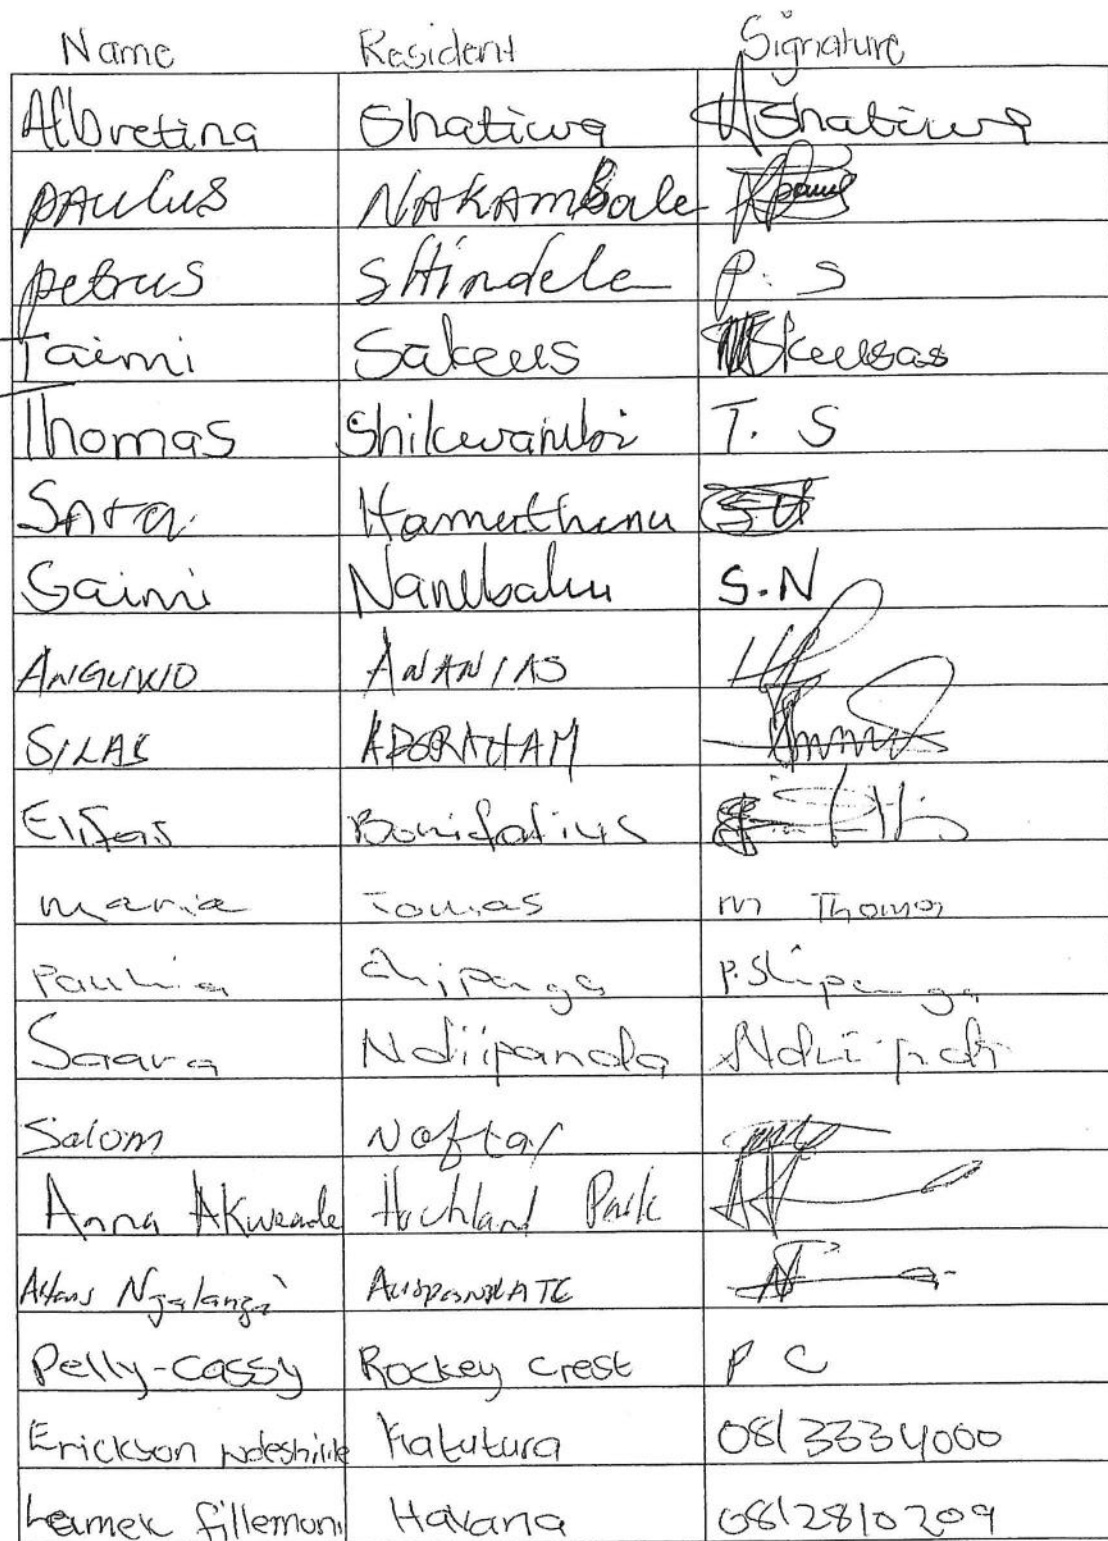 Name Resident Signature
Albretina Shatiwa AShatiwa
PAULUS NAKAMBale
petrus SHindele P. S
Taimi Sakeus Skeusas
Thomas Shikwambi T. S
Sara Hamuthenu
Saimi Nambahu S.N
ANANIAS
SILAS ABORAHAM
Elifas Bonifatius
maria Tomas m Thomas
Paulina Shipanga P.Shipanga
Saara Ndiipanda
Salom Noftal
Anna Akweade Hochland Park
Ngalangi
Pelly-Cassy Rockey Crest P C
Erickson Ndeshile Katutura 0813334000
Lamek fillemon Havana 0812810209